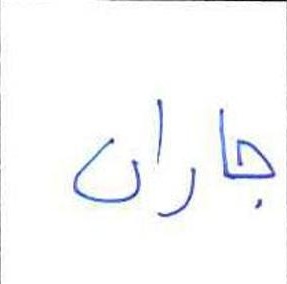 جاران